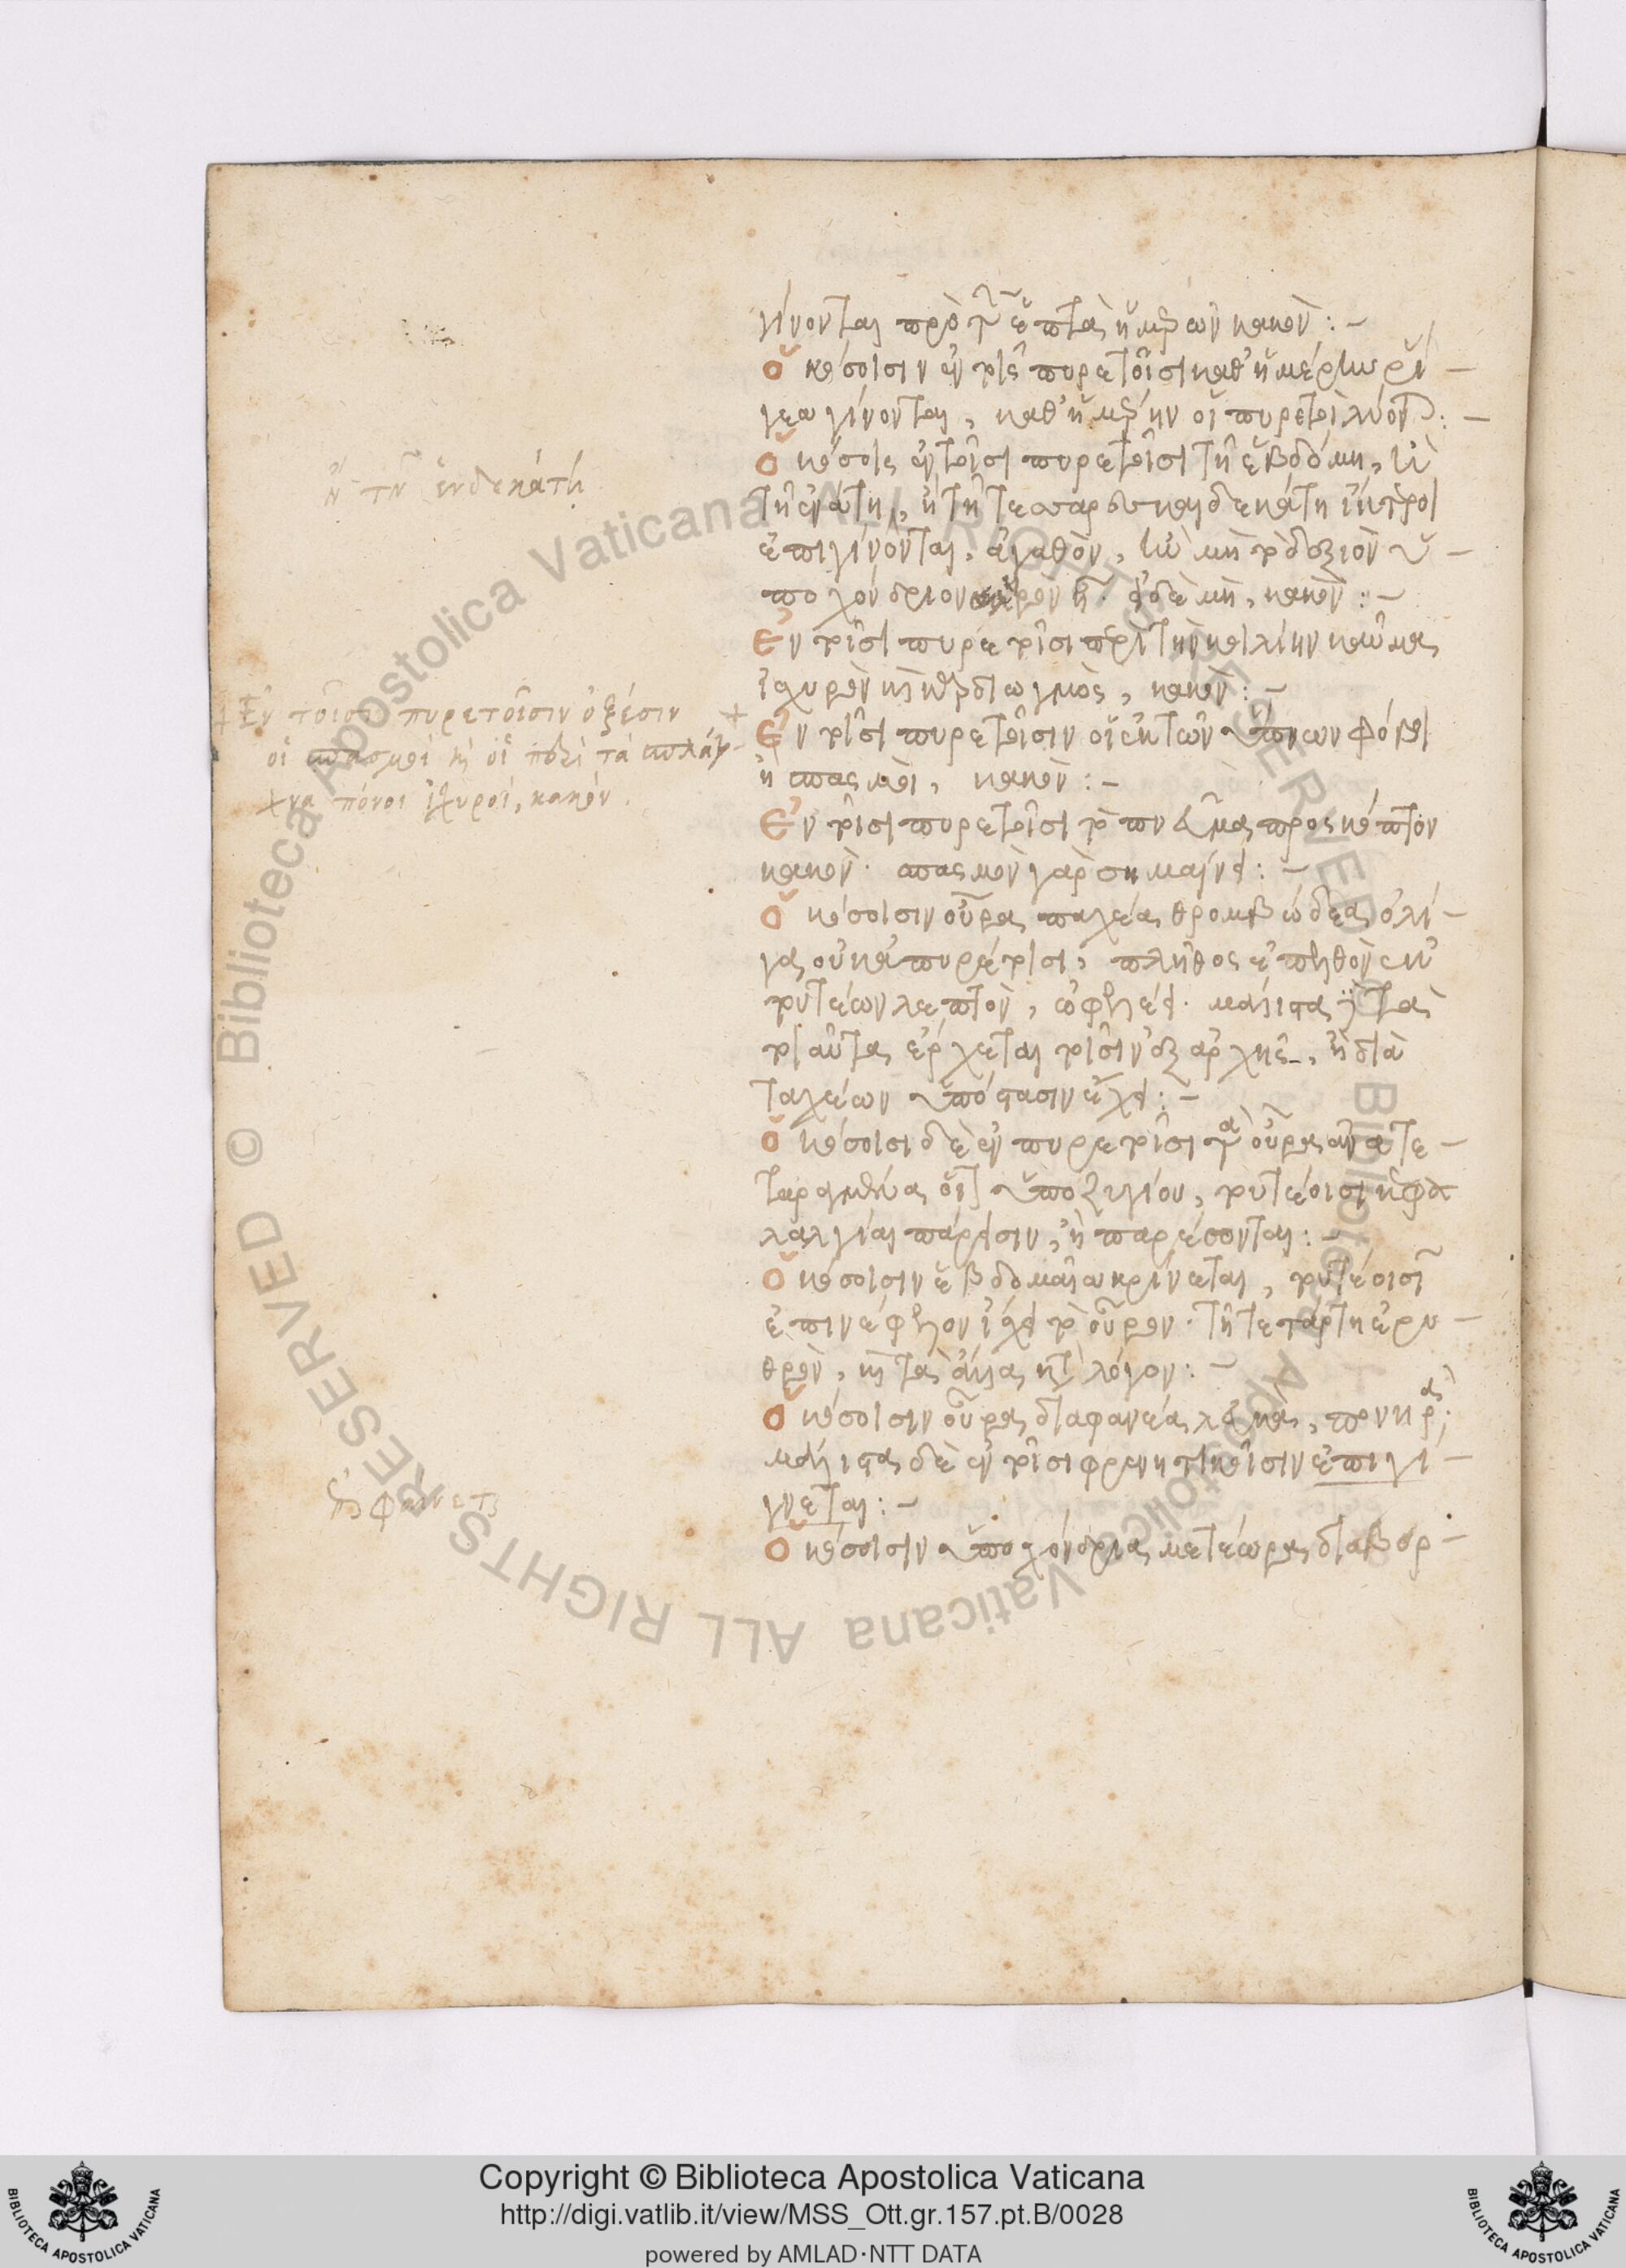 γίνονται πρὸ τῶν ἑπτὰ ἡμερῶν κακὸν:-
Ὁκόσοισιν ἐν τοῖς πυρετοῖσι καθ' ἡμέρην ῥί-
γεα γίνονται, καθ' ἡμέρην οἱ πυρετοὶ λύονται:-
Ὁκόσοις ἐν τοῖσι πυρετοῖσι τῆ ἑβδόμη, ἢ
τῆ ἐνάτη, ἢ τῆ τεσσαρεσκαιδεκάτη ἴκτεροι
ἐπιγίνονται, ἀγαθὸν, ἢν μὴ τὸ δεξιὸν ὑ-
ποχόνδριον σκληρὸν ἦ. εἰ δὲ μὴ, κακὸν:-
Ἐν τοῖσι πυρετοῖσι περὶ τὴν κοιλίην καῦμα
ἰσχυρὸν καὶ καρδιωγμὸς, κακὸν:-
Ἐν τοῖσι πυρετοῖσιν οἱ ἐκ τῶν ὕπνων φόβοι
ἢ σπασμοὶ, κακὸν:-
Ἐν τοῖσι πυρετοῖσι τὸ πνεῦμα προσκόπτον
κακὸν· σπασμὸν γὰρ σημαίνει:-
Ὁκόσοισιν οὖρα παχέα θρομβώδεα ὀλί-
γα οὐκ ἀπυρέτοισι, πλῆθος ἐπελθὸν ἐκ
τουτέων λεπτὸν, ὠφελέει· μάλιστα δὲ τὰ
τοιαῦτα ἔρχεται τοῖσιν ἐξ ἀρχῆς, ἢ διὰ
ταχέων ὑπόστασιν ἔχει:-
Ὁκόσοισι δὲ ἐν πυρετοῖσι τὰ οὖρα ἀνατε-
ταραγμένα οἷον ὑποζυγίου, τουτέοισι κεφα
λαλγίαι πάρεισιν, ἢ παρέσονται:-
Ὁκόσοισιν ἑβδομαῖα κρίνεται, τουτέοισιν
ἐπινέφελον ἴσχει τὸ οὖρον· τῆ τετάρτη ἐρυ-
θρὸν, καὶ τὰ ἄλλα κατὰ λόγον:-
Ὁκόσοισιν οὖρα διαφανέα λευκὰ, πονηρά;
μάλιστα δὲ ἐν τοῖσι φρενητικοῖσιν ἐπιγί-
γνεται:-
Ὁκόσοισιν ὑποχόνδρια μετέωρα διαβορ-
ἢ τῆ ἑνδεκάτη
+ Ἐν τοῖσι πυρετοῖσιν ὀξέσιν +
οἱ σπασμοὶ καὶ οἱ περὶ τὰ σπλάγ-
χνα πόνοι ἰσχυροὶ, κακόν.
Copyright © Biblioteca Apostolica Vaticana
http://digi.vatlib.it/view/MSS_Ott.gr.157.pt.B/0028
powered by AMLAD·NTT DATA
BIBLIOTECA APOSTOLICA VATICANA
BIBLIOTECA APOSTOLICA VATICANA
© Biblioteca Apostolica Vaticana ALL RIGHTS RESERVED
© Biblioteca Apostolica Vaticana ALL RIGHTS RESERVED